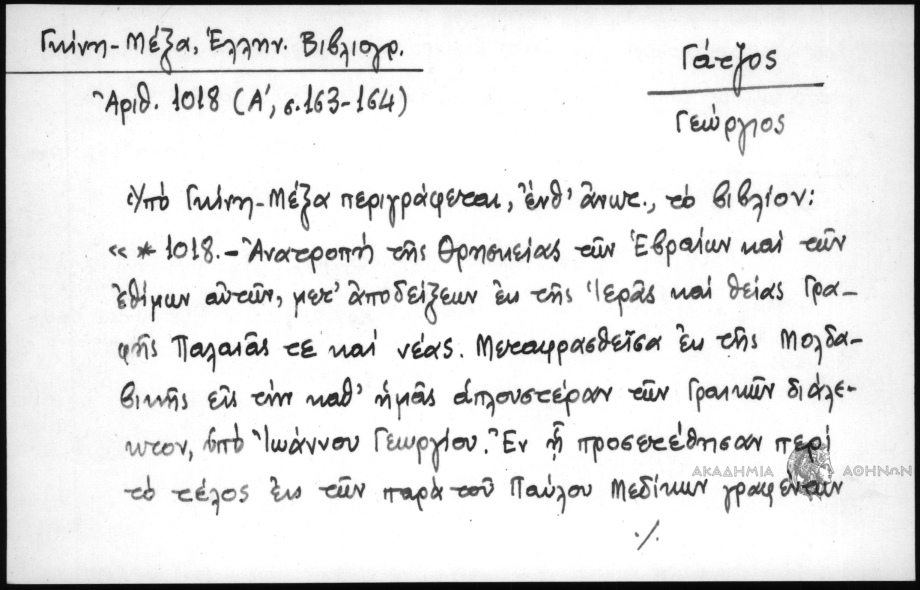 Γκίνη-Μέξα, Ἑλλην. Βιβλιογρ.
Ἀριθ. 1018 (Α', σ. 163-164)
Γάτζος
Γεώργιος
Ὑπὸ Γκίνη-Μέξα περιγράφεται, ἔνθ' ἄνωτ., τὸ βιβλίον:
«* 1018.- Ἀνατροπὴ τῆς Θρησκείας τῶν Ἑβραίων καὶ τῶν
ἐθίμων αὐτῶν, μετ' ἀποδείξεων ἐκ τῆς Ἱερᾶς καὶ θείας Γρα-
φῆς Παλαιᾶς τε καὶ νέας. Μεταφρασθεῖσα ἐκ τῆς Μολδα-
βικῆς εἰς τὴν καθ' ἡμᾶς ἁπλουστέραν τῶν Γραικῶν διάλε-
κτον, ὑπὸ Ἰωάννου Γεωργίου. Ἐν ᾗ προσετέθησαν περὶ
τὸ τέλος ἐκ τῶν παρὰ τοῦ Παύλου Μεδίκων γραφέντων
./.
ΑΚΑΔΗΜΙΑ ΑΘΗΝΩΝ